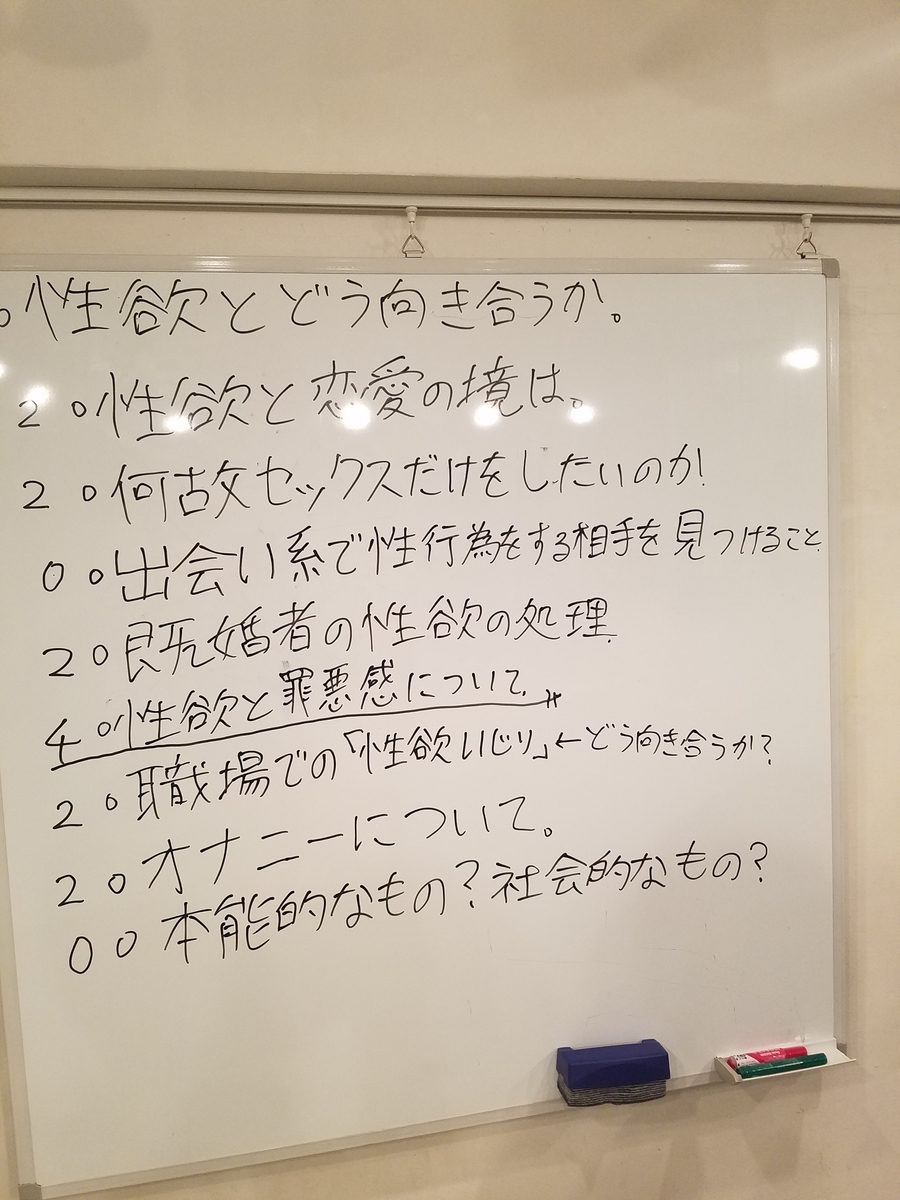 ○性欲とどう向き合うか。
2 ○性欲と恋愛の境は。
2 ○何故セックスだけをしたいのか!
0 ○出会い系で性行為をする相手を見つけること.
2 ○既婚者の性欲の処理.
4 ○性欲と罪悪感について.
2 ○職場での「性欲いじり」←どう向き合うか?
2 ○オナニーについて。
0 ○本能的なもの?社会的なもの?